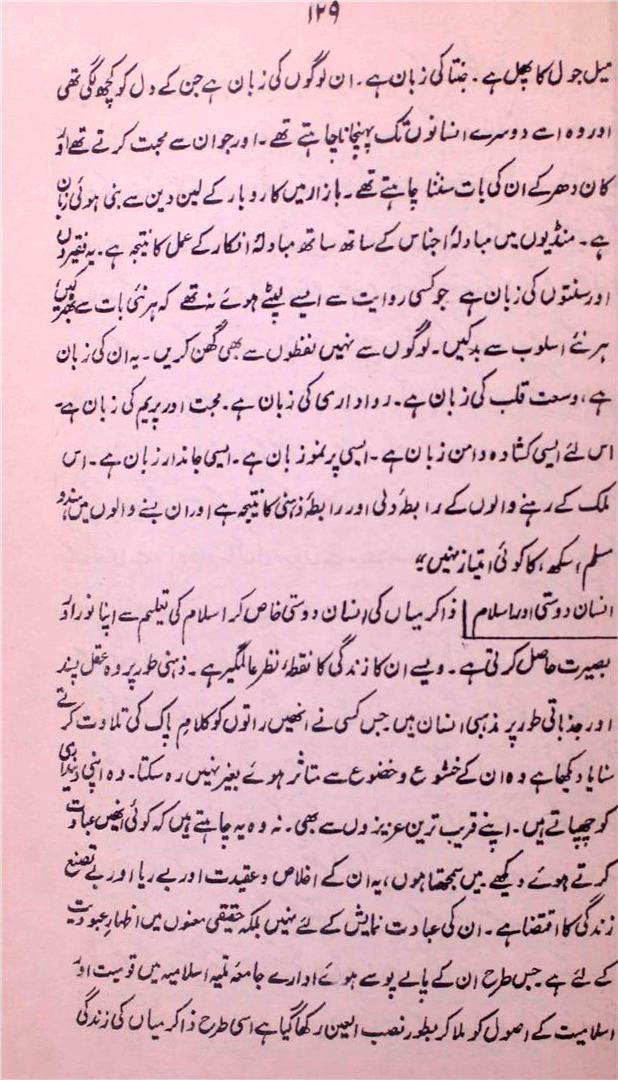 ۱۲۹
میل جول کا پھل ہے۔ جنتا کی زبان ہے۔ ان لوگوں کی زبان ہے جن کے دل کو کچھ لگی تھی
اور وہ اسے دوسرے انسانوں تک پہنچانا چاہتے تھے۔ اور جو ان سے محبت کرتے تھے اور
کان دھر کے ان کی بات سننا چاہتے تھے۔ بازار میں کاروبار کے لین دین سے بنی ہوئی زبان
ہے۔ منڈیوں میں مبادلۂ اجناس کے ساتھ ساتھ مبادلۂ افکار کے عمل کا نتیجہ ہے۔ یہ فقیروں
اور سنتوں کی زبان ہے جو کسی روایت سے ایسے لپٹے ہوئے نہ تھے کہ ہر نئی بات سے بھڑکیں
ہر نئے اسلوب سے بدکیں۔ لوگوں سے نہیں لفظوں سے بھی گھن کریں۔ یہ ان کی زبان
ہے، وسعت قلب کی زبان ہے۔ رواداری کی زبان ہے۔ محبت اور پریم کی زبان ہے۔
اس لئے ایسی کشادہ دامن زبان ہے۔ ایسی پرنمو زبان ہے۔ ایسی جاندار زبان ہے۔ اس
ملک کے رہنے والوں کے رابطۂ دلی اور رابطۂ ذہنی کا نتیجہ ہے اور ان بنے والوں میں ہندو
مسلم، سکھ، کا کوئی امتیاز نہیں؛"
انسان دوستی اور اسلام ذاکر میاں کی انسان دوستی خاص کر اسلام کی تعلیم سے اپنا نور اور
بصیرت حاصل کرتی ہے۔ ویسے ان کا زندگی کا نقطۂ نظر عالمگیر ہے۔ ذہنی طور پر وہ عقل پسند
اور جذباتی طور پر مذہبی انسان ہیں جس کسی نے انھیں راتوں کو کلام پاک کی تلاوت کرتے
سنا یا دیکھا ہے وہ ان کے خشوع و خضوع سے متاثر ہوئے بغیر نہیں رہ سکتا۔ وہ اپنی دینداری
کو چھپاتے ہیں۔ اپنے قریب ترین عزیزوں سے بھی۔ نہ وہ یہ چاہتے ہیں کہ کوئی انھیں عبادت
کرتے ہوئے دیکھے میں سمجھتا ہوں، یہ ان کے اخلاص و عقیدت اور بے ریا اور بے تصنع
زندگی کا اقتضا ہے۔ ان کی عبادت نمایش کے لئے نہیں بلکہ حقیقی معنوں میں اظہارِ عبودیت
کے لئے ہے جس طرح ان کے پالے پوسے ہوئے ادارے جامعہ ملیہ اسلامیہ میں قومیت اور
اسلامیت کے اصول کو ملا کر بطور نصب العین رکھا گیا ہے اسی طرح ذاکر میاں کی زندگی